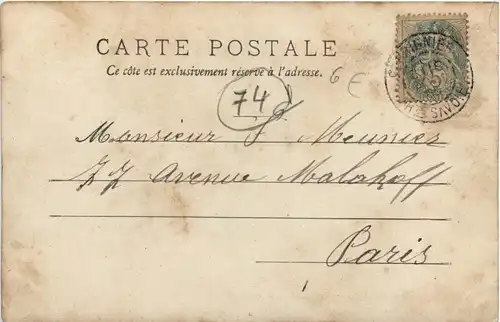 CARTE POSTALE
Ce côté est exclusivement réservé à l'adresse.
6 €
74
Monsieur J. Meunier
77 Avenue Malakoff
Paris
SAVOIE